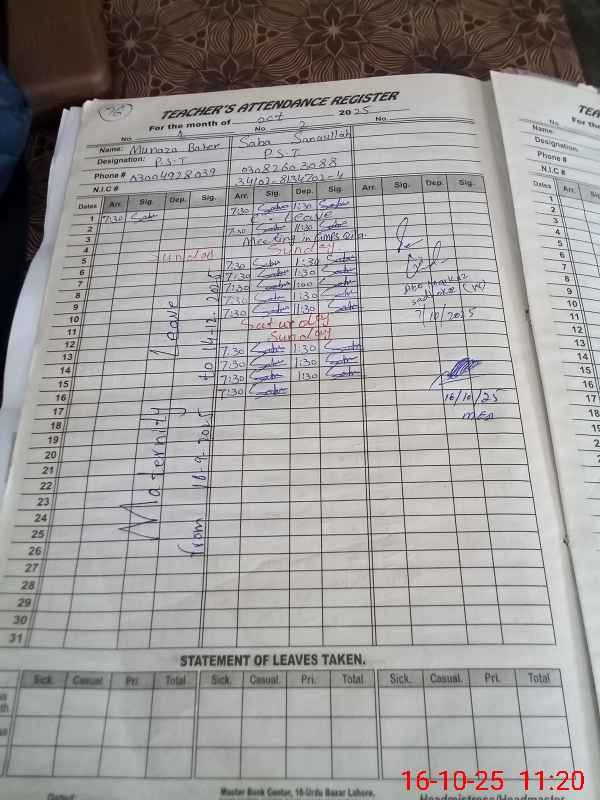 76
TEACHER'S ATTENDANCE REGISTER
For the month of oct 2025
No. 1 No. 2 No.
Name: Munaza Baker Saba Sanaullah
Designation: P.S.T P.S.T
Phone # 03004928039 03082603088
N.I.C # 34102-8134702-4
Dates Arr. Sig. Dep. Sig. Arr. Sig. Dep. Sig. Arr. Sig. Dep. Sig.
1 7:30 Saba 7:30 Saba 1:30 Saba
2 Leave
3 7:30 Saba 11:30 Saba
4 Meeting in
5 Sunday Sunday
6 7:30 Saba 1:30 Saba
7 7:30 Saba 1:30 Saba
8 7:30 Saba 1:00 Saba
9 7:30 Saba 1:30 Saba
10 7:30 Saba 11:30 Saba
11 Saturday
12 Sunday
13 7:30 Saba 1:30 Saba
14 7:30 Saba 1:30 Saba
15 7:30 Saba 1:30 Saba
16 7:30 Saba
17
18
19
20
21
22
23
24
25
26
27
28
29
30
31
Maternity Leave
from 16-9-2025 to 14-12-2025
7/10/2025
16/10/25
MEA
STATEMENT OF LEAVES TAKEN.
Sick. Casual. Pri. Total Sick. Casual. Pri. Total Sick. Casual. Pri. Total
Master Book Center, 16-Urdu Bazar Lahore.
Headmistress/Headmaster
TEA
For the
No.
Name:
Designation:
Phone #
N.I.C #
Dates Arr. Sig.
1
2
3
4
5
6
7
8
9
10
11
12
13
14
15
16
17
16-10-25 11:20